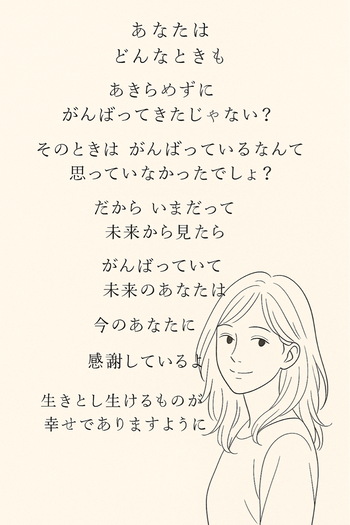 あなたは
どんなときも
あきらめずに
がんばってきたじゃない？
そのときは がんばっているなんて
思っていなかったでしょ？
だから いまだって
未来から見たら
がんばっていて
未来のあなたは
今のあなたに
感謝しているよ
生きとし生けるものが
幸せでありますように